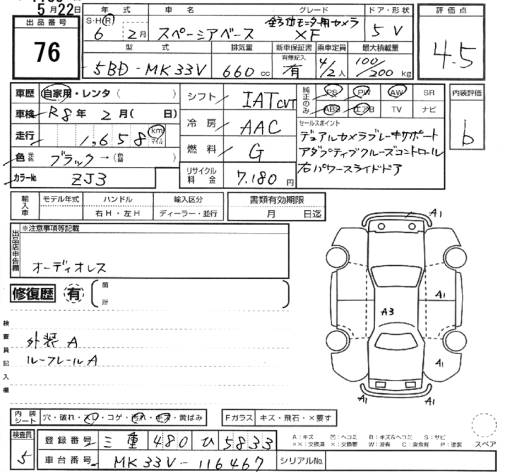 5月22日
出品番号
76
年式 車名 グレード ドア・形状
S・H・R 6 2月 スペーシアベース XF 5V
全方位モニター用カメラ
型式 排気量 新車保証書 乗車定員 最大積載量
有無記入
5BD-MK33V 660cc 有 4/2人 100/200kg
評価点
4.5
車歴 自家用・レンタ( )
車検 R8年2月( 日)
走行 1,658 km マイル
色 ブラック→( )
カラーNo. ZJ3
シフト IAT CVT
冷房 AAC
燃料 G
リサイクル料金 7.180円
純正のみ PS PW AW SR
ABS エアB TV ナビ
セールスポイント
デュアルカメラブレーキサポート
アダプティブクルーズコントロール
右パワースライドドア
内装評価
b
輸入車 モデル年式 ハンドル 輸入区分
右H・左H ディーラー・並行
書類有効期限
月 日迄
出品店申告欄 ※注意事項等記載
オーディオレス
修復歴 有
検査員記入欄
外装A
ルーフレールA
A1
A1
A3
A1
A1
内装シート 穴・破れ・スレ・コゲ・汚れ・キズ・黄ばみ
Fガラス キズ・飛石・×要す
検査員
5
登録番号 三重 480 ひ 5833
車台番号 MK33V-116467 シリアルNo.
スペア